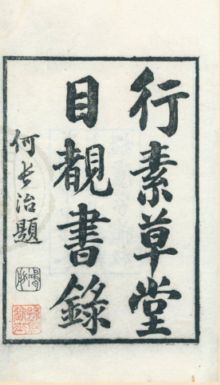 行素草堂
目覩書錄
何長治題